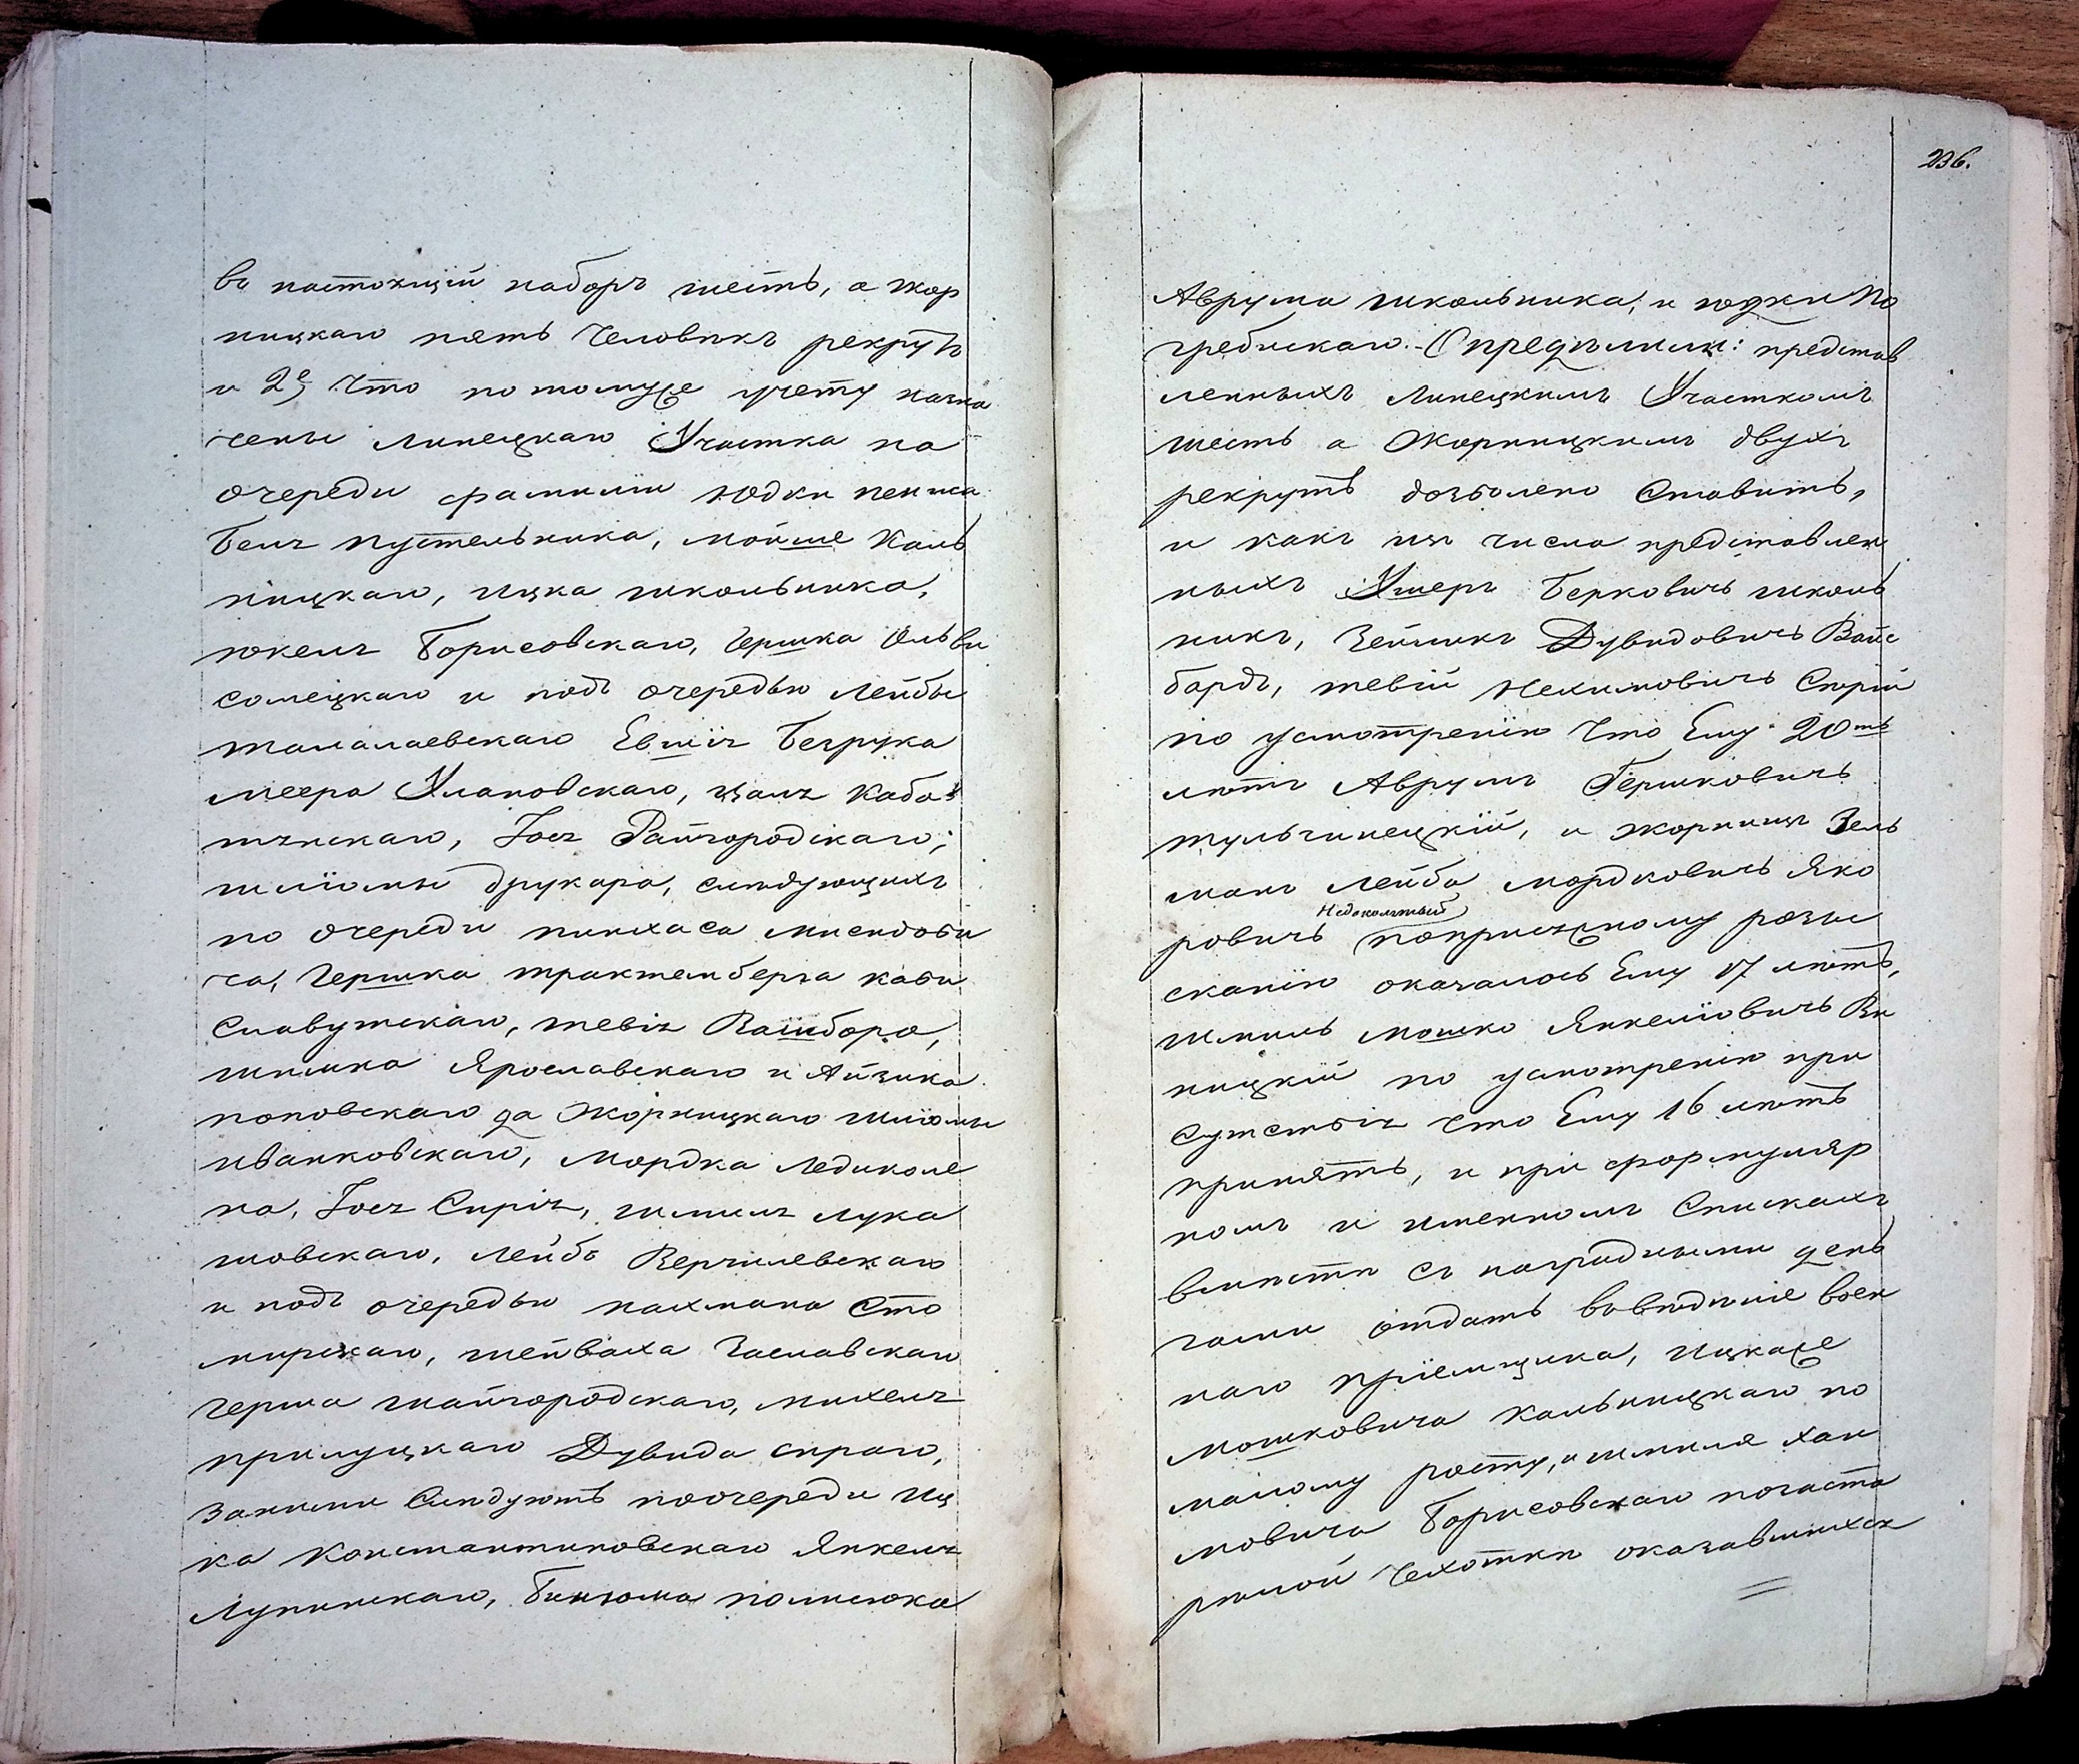 въ настоящій наборъ шесть, а жор
ницкаго пять человѣкъ рекрутъ
и 2е, что по томуже учету назна
чены Липецкаго Участка на
очереди фамиліи Юдки
Беля Пустельника, Мойше Каль
ницкаго, Ицка Школьника,
Юкеля Борисовскаго, Гершка Ольви
сомецкаго и подъ очередью Лейбы
Талалаевскаго Евшія Безрука
Меера Улановскаго,
Іося Райгородскаго,
Шліомы Друкара, слѣдующихъ
по очереди Пинхаса
ча, Гершка Трактенберга
Славутскаго, Тевія Вайсборда,
Шлиока Ярославскаго и Айзика
Поповскаго да Жорницкаго Шліомы
Иванковскаго, Мордка
на, Іося Сирія, Шмиля Лука
шовскаго, Лейба Верчилевскаго
и подъ очередью Нахмана Сто
мирскаго, Шейваха Заславскаго
Герша Шайгородскаго, Михеля
Прилуцкаго Дувида Сираго,
за ними слѣдуютъ по очереди Иц
ка Константиновскаго Янкеля
Лупинскаго, Бинюма Полисюка
236.
Аврума Школьника, и Юдки По
гребискаго. - Опредѣлили: представ
ленныхъ Липецкимъ Участкомъ
шесть а Жорницкимъ двухъ
рекрутъ дозволено ставить,
и какъ изъ числа представлен
ныхъ Ушеръ Берковичъ Школь
никъ, Зейликъ Дувидовичъ Вайс
бордъ, Тевій Нехимовичъ Сирій
по усмотренію что Ему 20ть
лѣтъ Аврумъ Гершковичъ
Тульчинецкій, и Жорниц Зель
манъ Лейба Мордковичъ Яко
ровичъ Недокольтый поприсяжному розы
сканію оказалось Ему 17 лѣтъ,
Шмиль Мошко Янкеліовичъ Ви
ницкій по усмотренію при
сутствія что Ему 16 лѣтъ
принять, и при формуляр
номъ и именномъ спискахъ
вмѣстѣ съ наградными день
гами отдать въ вѣденіе воен
наго пріемщика, Ицкаже
Мошковича Кальницкаго по
малому росту, и Шмиля Хаи
мовича Борисовскаго по
чахотки оказавшихся